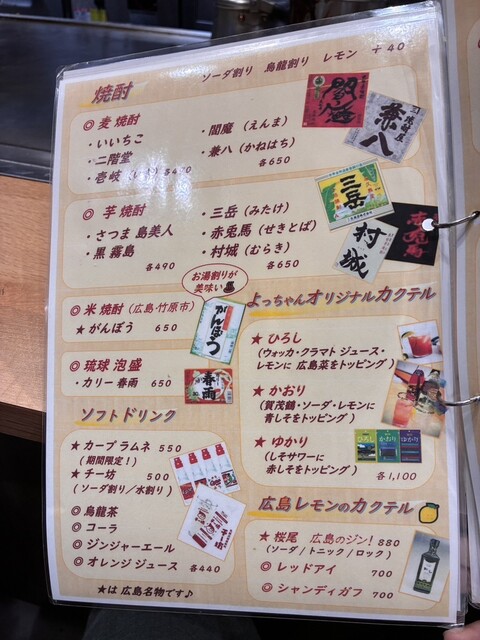 焼酎
ソーダ割り 烏龍割り レモン +40
◎ 麦 焼酎
・いいちこ
・二階堂
・壱岐
・閻魔（えんま）
・兼八（かねはち）
各650
兼八
◎ 芋 焼酎
・さつま 島美人
・黒 霧島
各490
・三岳（みたけ）
・赤兎馬（せきとば）
・村城（むらき）
各650
三岳
村城
赤兎馬
お湯割りが
美味い
◎ 米 焼酎（広島・竹原市）
★ がんぼう 650
がんぼう
◎ 琉球 泡盛
・カリー 春雨 650
春雨
ソフトドリンク
★ カープ ラムネ 550
（期間限定！）
★ チー坊 500
（ソーダ割り／水割り）
◎ 烏龍茶
◎ コーラ
◎ ジンジャーエール
◎ オレンジ ジュース 各440
★は 広島名物です♪
よっちゃんオリジナルカクテル
★ ひろし
（ウォッカ・クラマト ジュース・
レモンに 広島菜をトッピング）
★ かおり
（賀茂鶴・ソーダ・レモンに
青しそをトッピング）
★ ゆかり
（しそサワーに
赤しそをトッピング）
各1,100
ひろし かおり ゆかり
広島 レモンのカクテル
★ 桜尾 広島のジン！ 880
（ソーダ／トニック／ロック）
◎ レッドアイ 700
◎ シャンディガフ 700